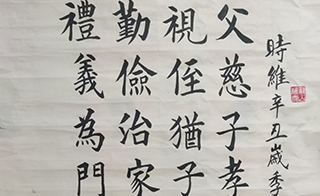 父慈子孝
視侄猶子
勤儉治家
禮義為門
時維辛丑歲季